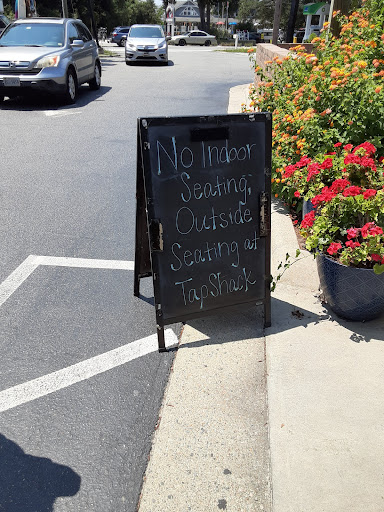 No Indoor
Seating;
Outside
Seating at
TapShack